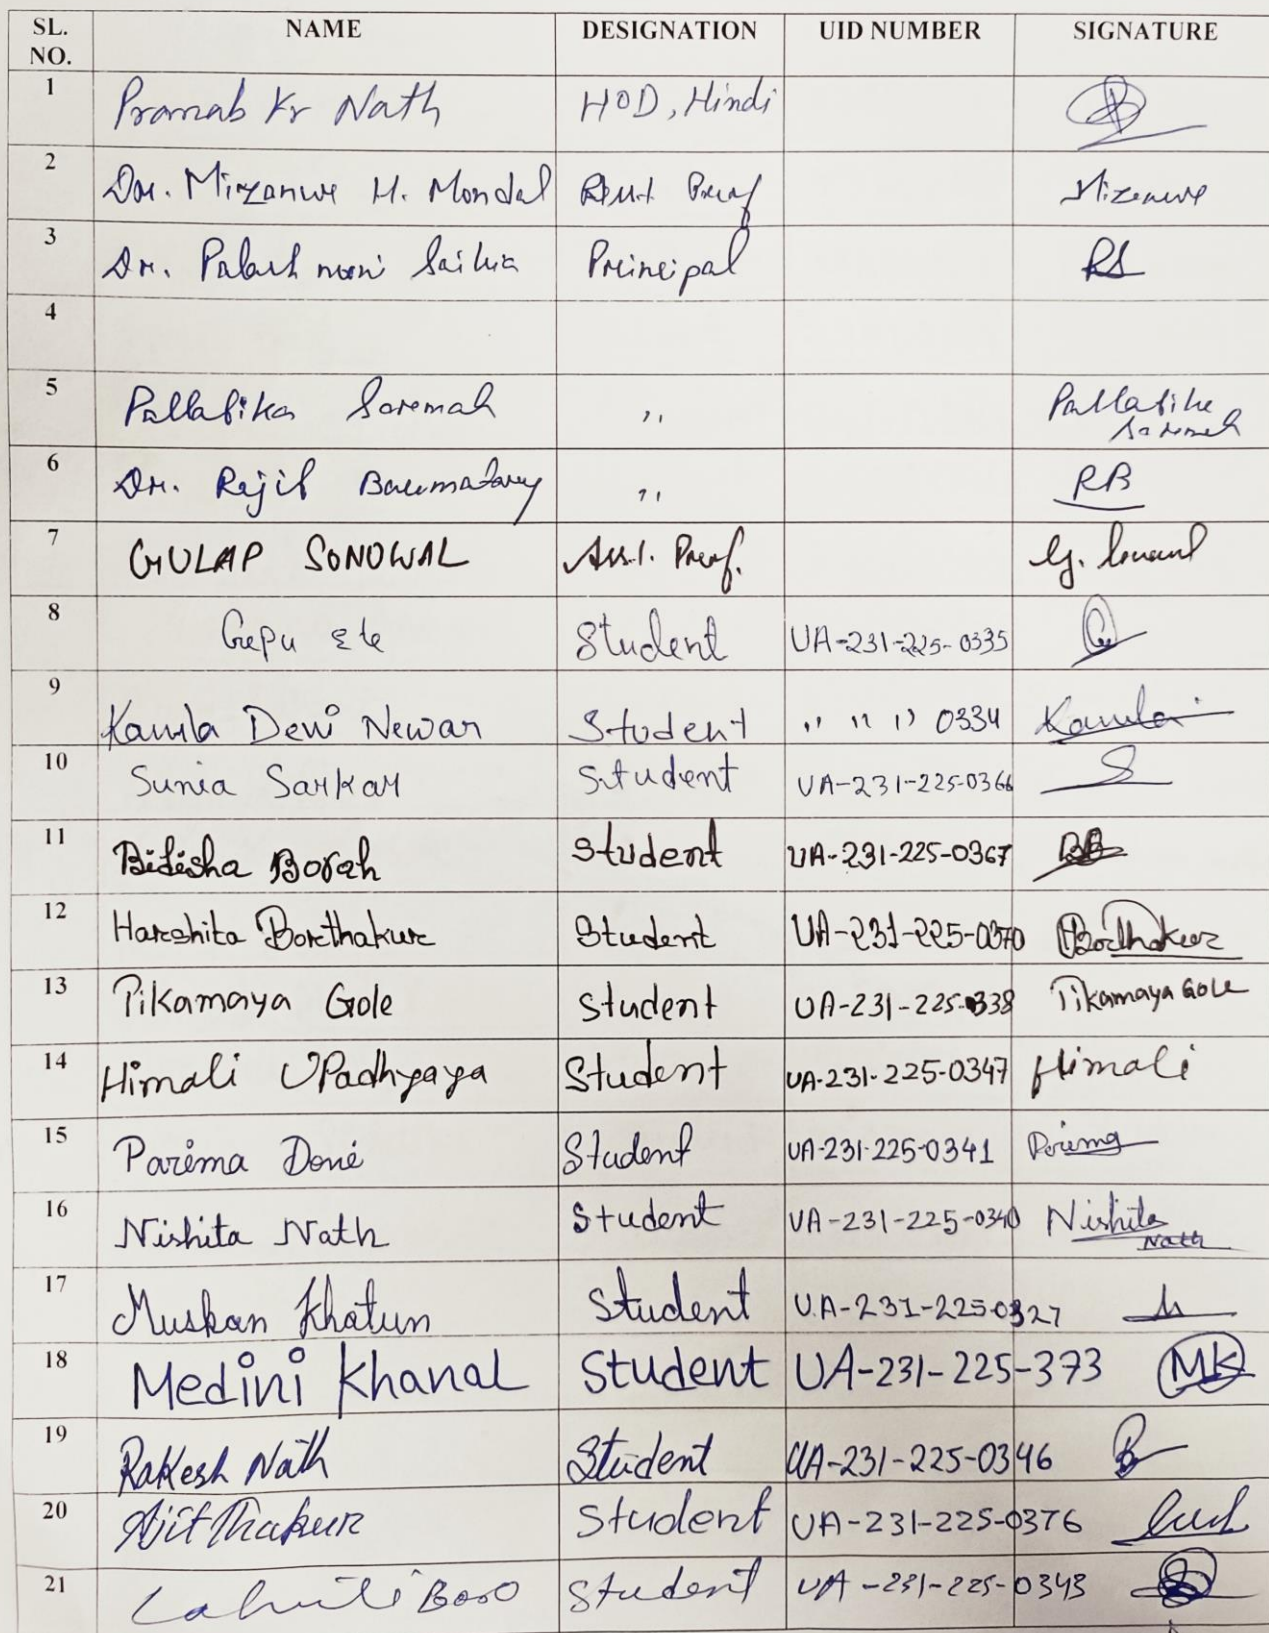 SL. NO. NAME DESIGNATION UID NUMBER SIGNATURE
1 Pranab Kr Nath HOD, Hindi
2 Dr. Mizanur H. Mondal Asst. Prof
3 Dr. Palash moni Saikia Principal RS
4
5 Pallabika Soremah ,, Pallabika Soremah
6 Dr. Rajib Baumatary ,, RB
7 GULAP SONOWAL Asst. Prof. G. Sonowal
8 Gepu Ete Student UA-231-225-0335
9 Kamla Devi Newar Student ,, ,, ,, 0334 Kamla
10 Sunia Sarkar Student UA-231-225-0366 S
11 Bidisha Borah Student UA-231-225-0367 BB
12 Harshita Borthakur Student UA-231-225-0370 HBorthakur
13 Tikamaya Gole Student UA-231-225-0338 Tikamaya Gole
14 Himali UPadhyaya Student UA-231-225-0347 Himali
15 Parima Doni Student UA-231-225-0341 Parima
16 Nishita Nath Student UA-231-225-0340 Nishita Nath
17 Muskan Khatun Student UA-231-225-0327
18 Medini Khanal Student UA-231-225-373 MK
19 Rakesh Nath Student UA-231-225-0346
20 Ajit Thakur Student UA-231-225-0376
21 Boro Student UA-231-225-0343